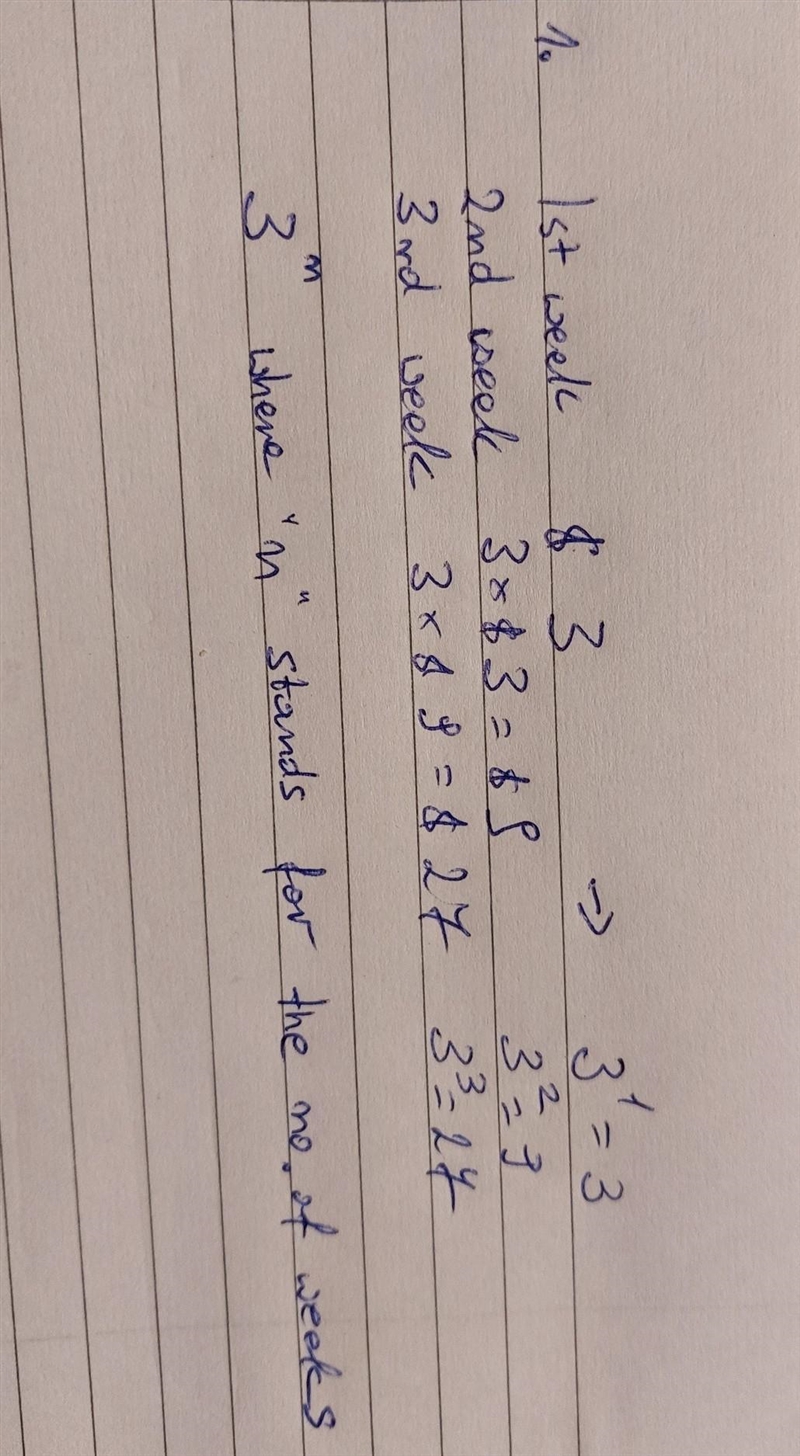 1. 1st week $ 3 → 3¹ = 3
2nd week 3 × $ 3 = $ 9 3² = 9
3rd week 3 × $ 9 = $ 27 3³ = 27
3ⁿ where "n" stands for the no. of weeks